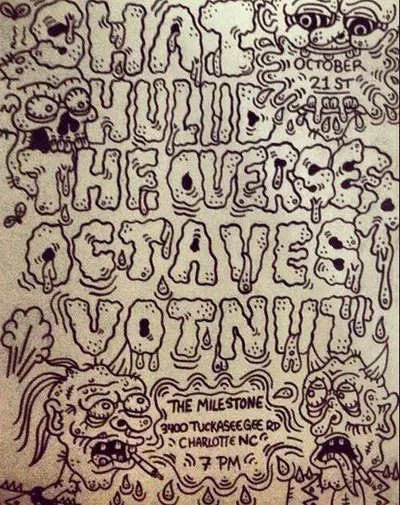 SHAI
OCTOBER
21ST
HULUD
THE OVERSEER
OCTAVES
VOTNUT
THE MILESTONE
3400 TUCKASEEGEE RD
CHARLOTTE NC
7 PM